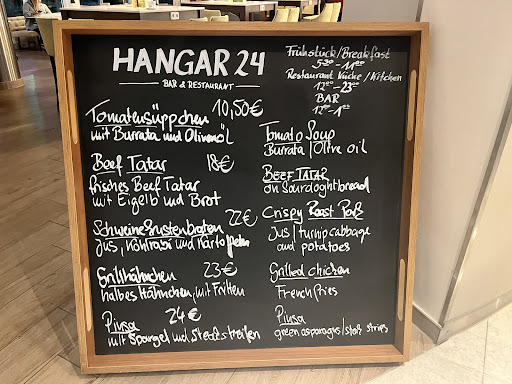 HANGAR 24
BAR & RESTAURANT
Frühstück/Breakfast
5³⁰ - 11⁰⁰
Restaurant Küche/Kitchen
12⁰⁰ - 23⁰⁰
BAR
12⁰⁰ - 1⁰⁰
Tomatensüppchen 10,50€
mit Burrata und Olivenöl
Beef Tatar 18€
frisches Beef Tatar
mit Eigelb und Brot
Schweinekrustenbraten 22€
Jus, Kohlrabi und Kartoffeln
Grillhähnchen 23€
halbes Hähnchen, mit Fritten
Pinsa 24€
mit Spargel und Steakstreifen
Tomato Soup
Burrata / Olive oil
BEEF TATAR
on Sourdoghtbread
Crispy Roast Pork
Jus / turnip cabbage
and potatoes
Grilled chicken
French fries
Pinsa
green asparagus / steak strips